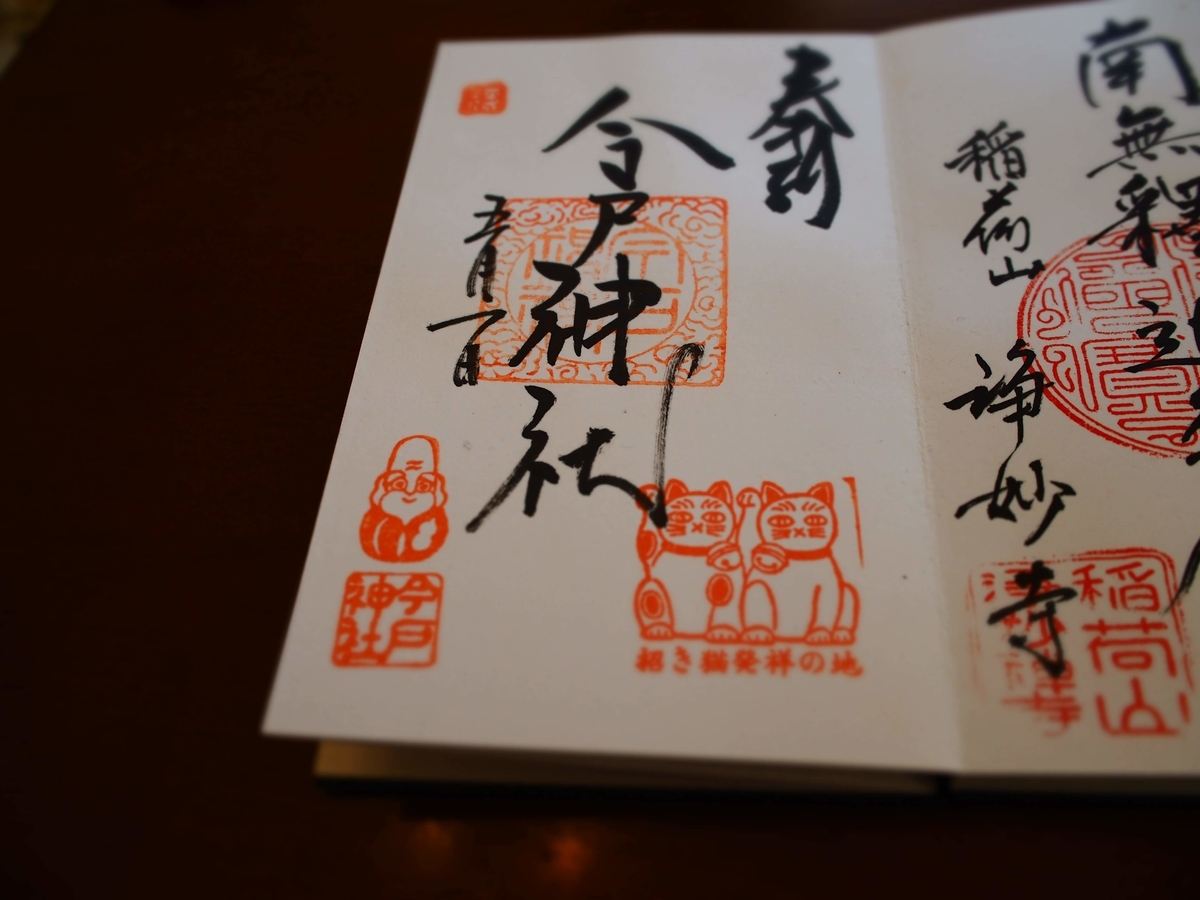 南無釋
稲荷山 諍妙寺
稲荷山
奉拝
今戸神社
五月一日
今戸神社
招き猫発祥の地